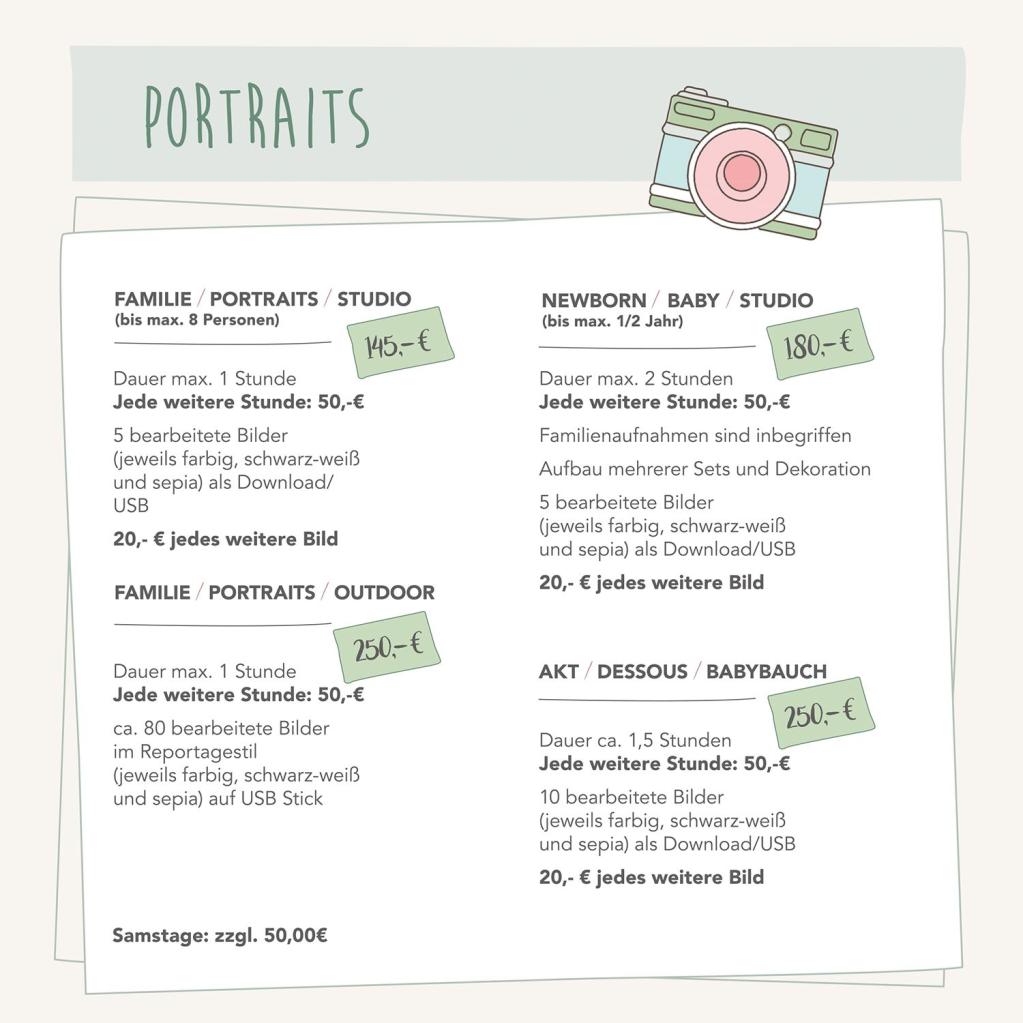 PORTRAITS
FAMILIE / PORTRAITS / STUDIO
(bis max. 8 Personen)
145,- €
Dauer max. 1 Stunde
Jede weitere Stunde: 50,-€
5 bearbeitete Bilder
(jeweils farbig, schwarz-weiß
und sepia) als Download/
USB
20,- € jedes weitere Bild
FAMILIE / PORTRAITS / OUTDOOR
250,- €
Dauer max. 1 Stunde
Jede weitere Stunde: 50,-€
ca. 80 bearbeitete Bilder
im Reportagestil
(jeweils farbig, schwarz-weiß
und sepia) auf USB Stick
Samstage: zzgl. 50,00€
NEWBORN / BABY / STUDIO
(bis max. 1/2 Jahr)
180,- €
Dauer max. 2 Stunden
Jede weitere Stunde: 50,-€
Familienaufnahmen sind inbegriffen
Aufbau mehrerer Sets und Dekoration
5 bearbeitete Bilder
(jeweils farbig, schwarz-weiß
und sepia) als Download/USB
20,- € jedes weitere Bild
AKT / DESSOUS / BABYBAUCH
250,- €
Dauer ca. 1,5 Stunden
Jede weitere Stunde: 50,-€
10 bearbeitete Bilder
(jeweils farbig, schwarz-weiß
und sepia) als Download/USB
20,- € jedes weitere Bild